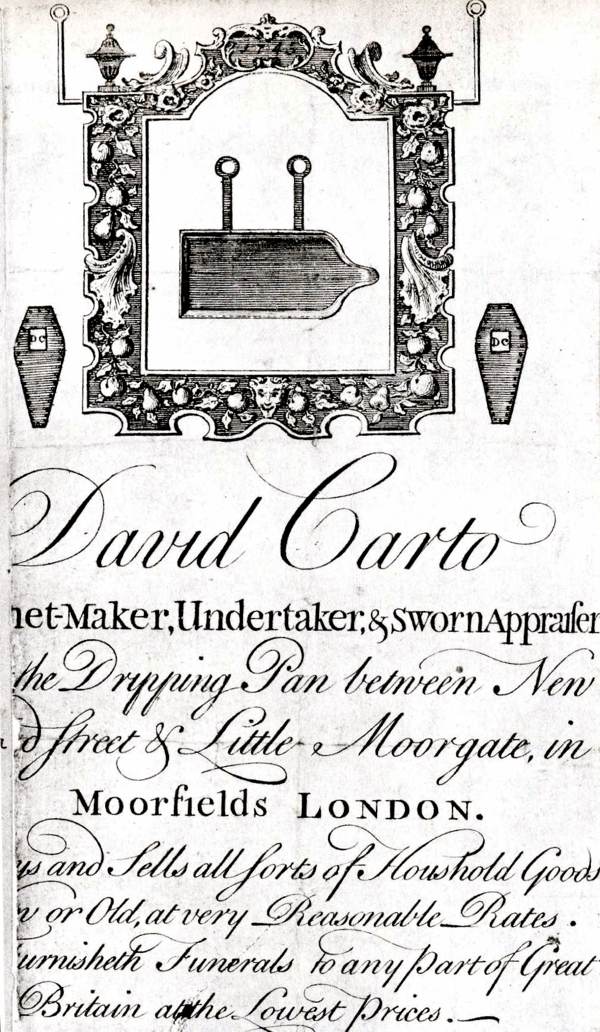 DC
DC
David Carto
net-Maker, Undertaker, & Sworn Appraiſer
the Dripping Pan between New
d Street & Little Moorgate, in
Moorfields LONDON.
ys and Sells all ſorts of Houshold Goods
w or Old, at very Reasonable Rates.
urnisheth Funerals to any part of Great
Britain at the Lowest Prices.—